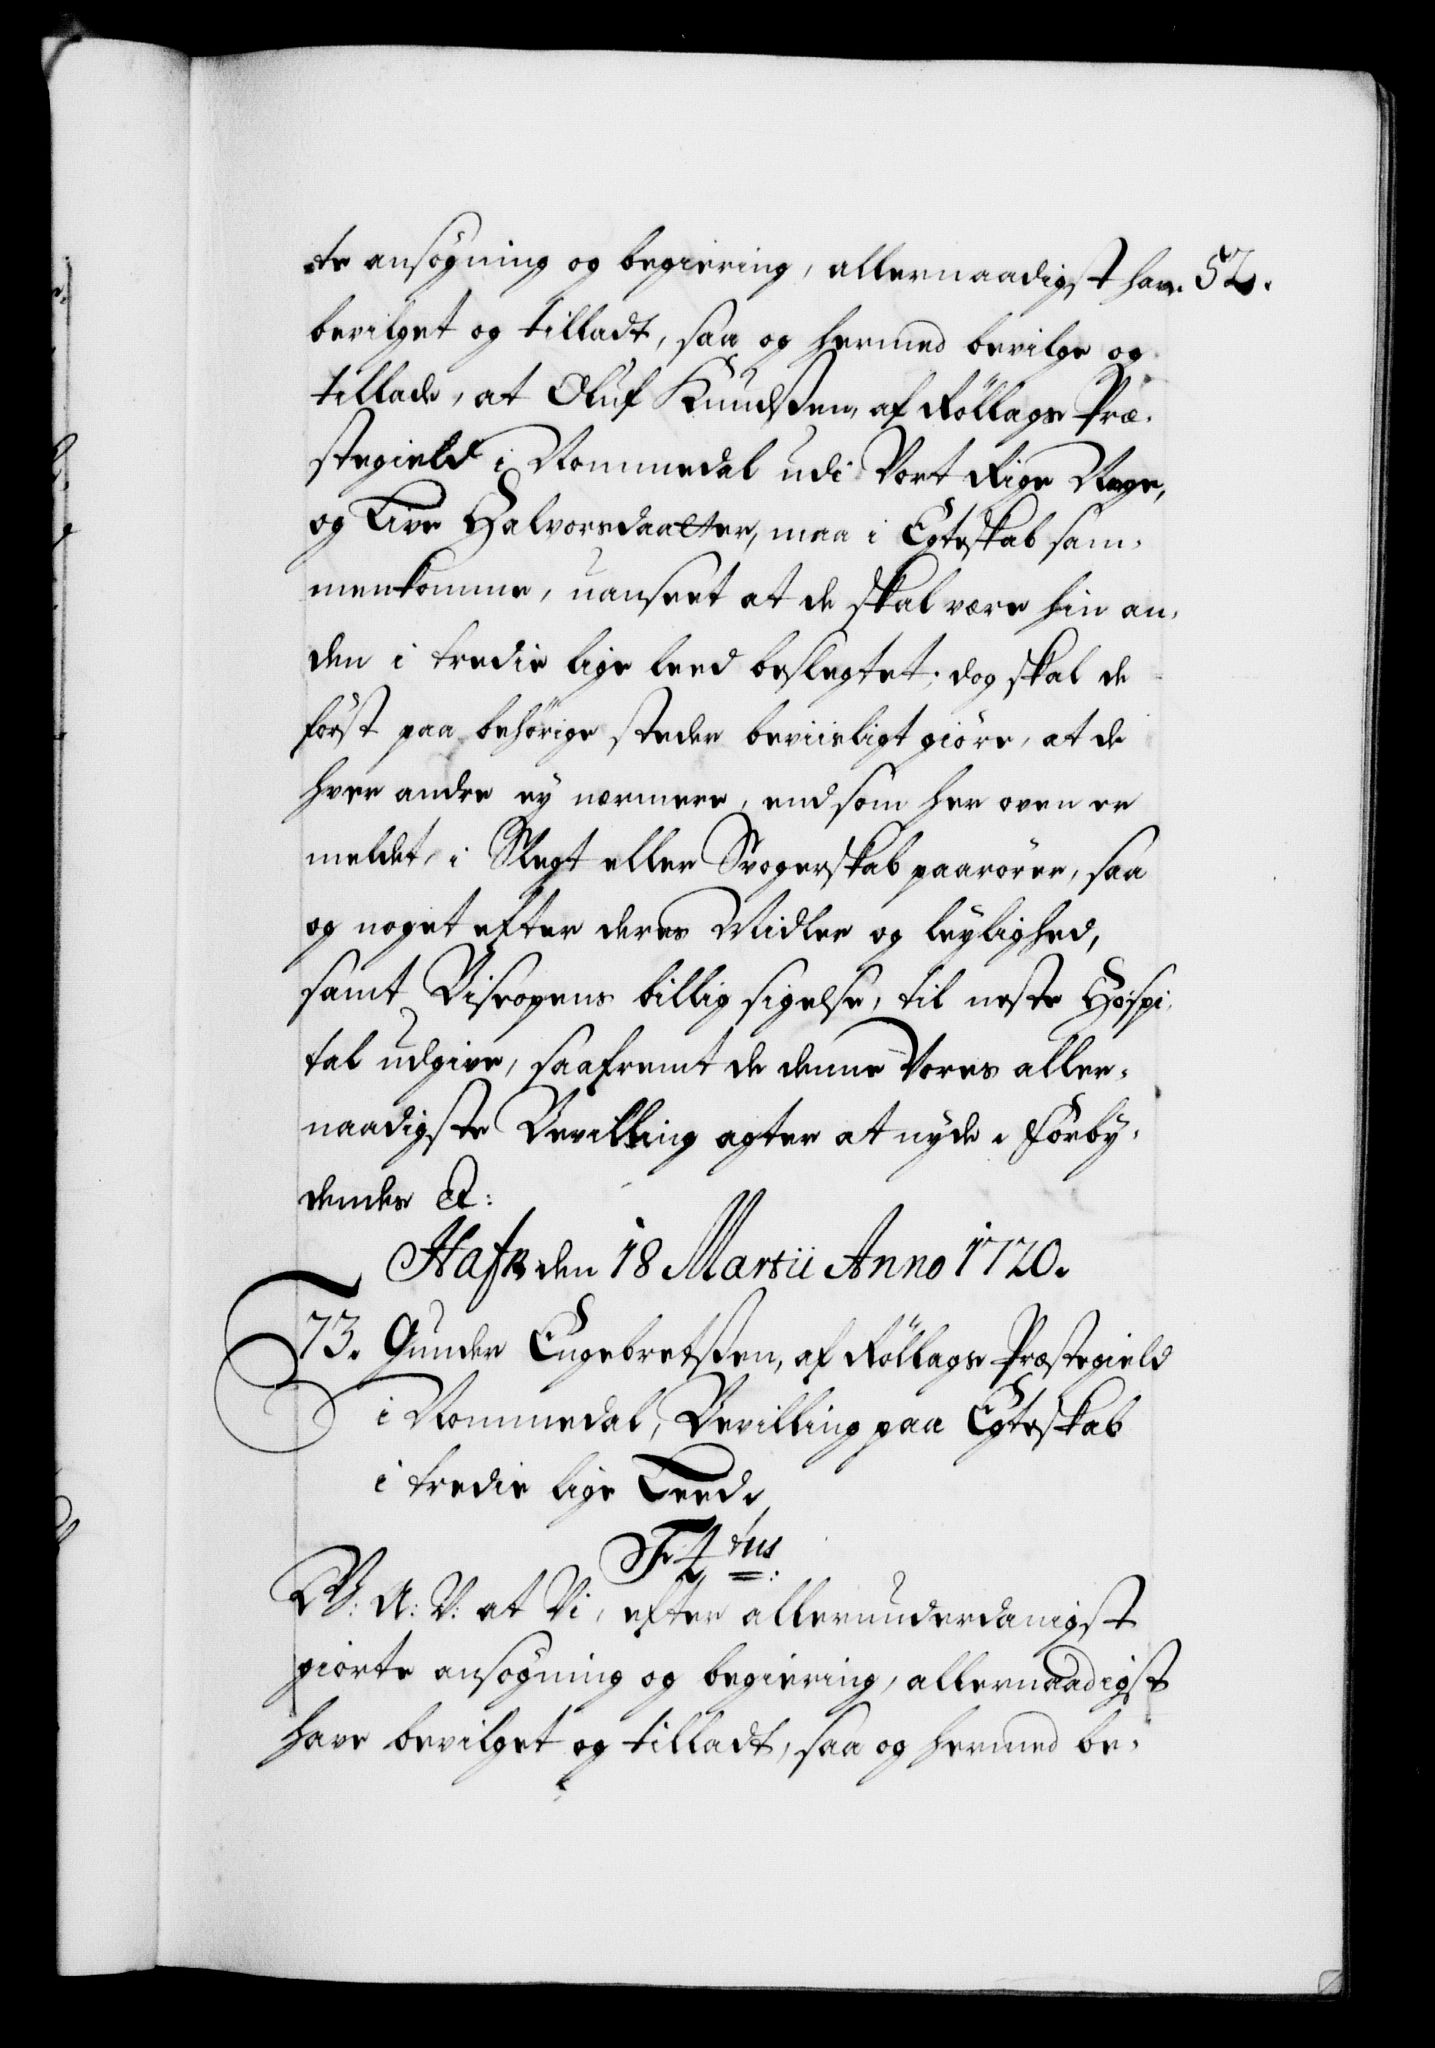 te ansøgning og begiering, allernaadigst have 52.
bevilget og tilladt, saa og hermed bevilge og
tillade, at Oluf Knudsen, af Röllags Præ-
stegield i Nommedal udi Vort Rige Norge,
og Live Halvorsdaatter, maa i Egteskab sam-
menkomme, uanseet at de skal være hin an-
den i tredie lige leed beslegtet; dog skal de
först paa behörige steder beviisligt giöre, at de
hver andre ey nærmere, end som her oven er
meldet, i Slegt eller Svogerskab paarörer, saa
og noget efter deres Midler og leylighed,
samt Biscopens billig sigelse, til neste Hospi-
tal udgive, saafremt de denne Vores aller-
naadigste Bevilling agter at nyde. Forby-
dendes &:
Hafn den 18 Martii Anno 1720.
73. Gunder Engebretsen, af Röllags Præstegield
i Nommedal, Bevilling paa Egteskab
i tredie lige Leed.
F. 4tus:
G: A: V: at Vi, efter allerunderdanigst
giorte ansøgning og begiering, allernaadigst
have bevilget og tilladt, saa og hermed be-